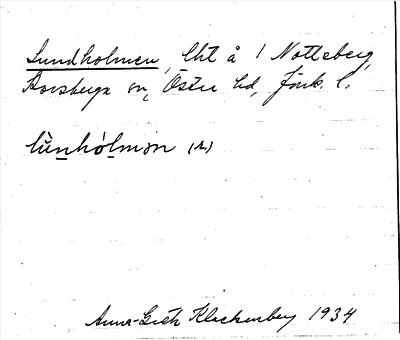 Lundholmen, lht å 1 Notteberg,
Korsberga sn, Östra hd, Jönk. l.
lùnhólmən (A)
Anna-Greth Klackenberg 1934